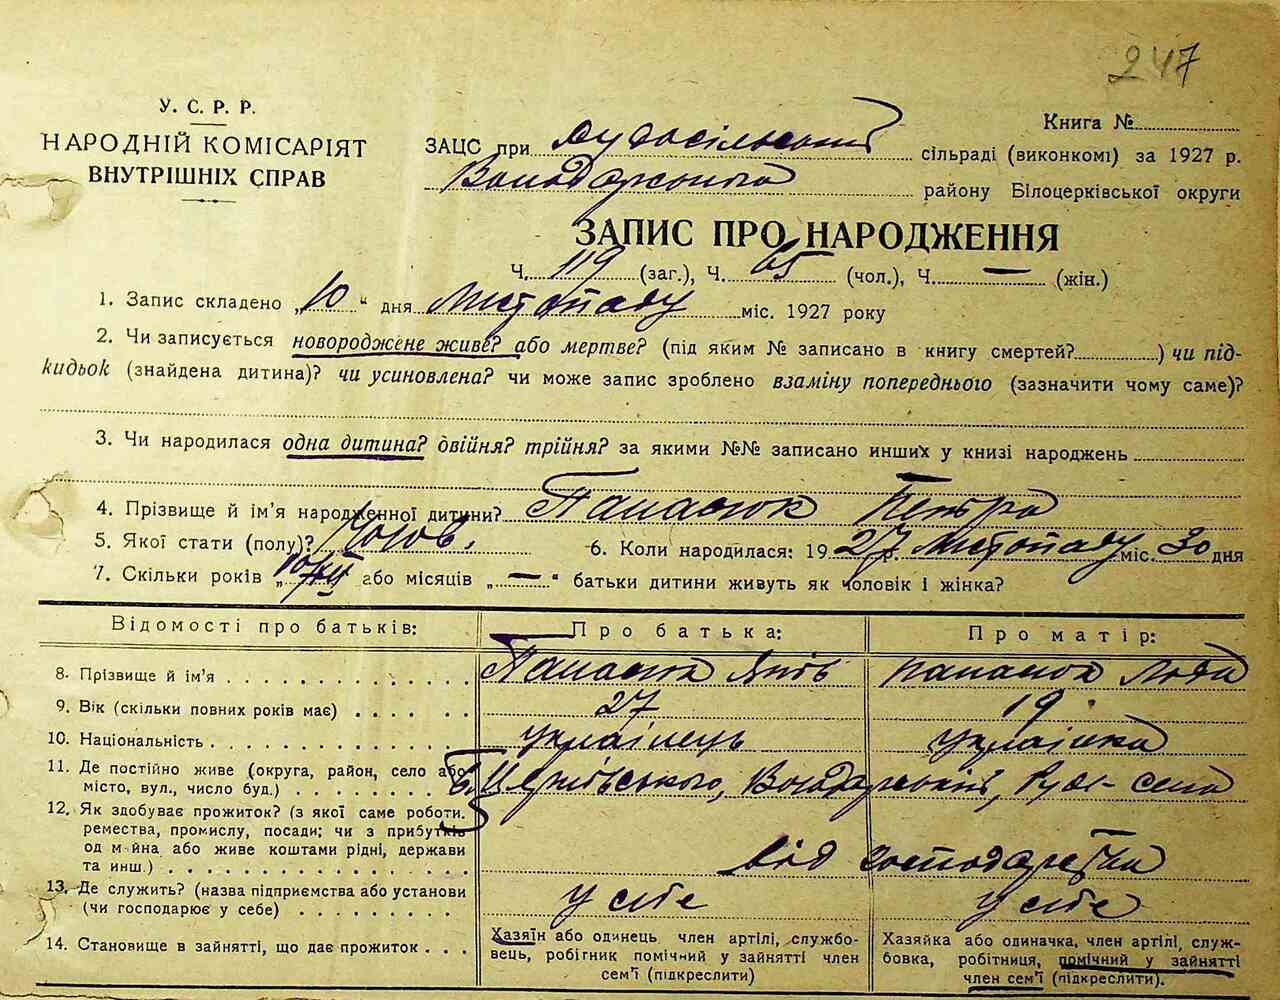 247
У. С. Р. Р.
НАРОДНІЙ КОМІСАРІЯТ
ВНУТРІШНІХ СПРАВ
Книга №
ЗАЦС при Рудосільський сільраді (виконкомі) за 1927 р.
Володарського району Білоцерківської округи
ЗАПИС ПРО НАРОДЖЕННЯ
Ч. 119 (заг.), Ч. 65 (чол.), Ч. — (жін.)
1. Запис складено „10“ дня Листопаду міс. 1927 року
2. Чи записується новороджене живе? або мертве? (під яким № записано в книгу смерті?) чи під-
кидьок (знайдена дитина)? чи усиновлена? чи може запис зроблено взаміну попереднього (зазначити чому саме)?
3. Чи народилася одна дитина? двійня? трійня? за якими №№ записано инших у книзі народжень
4. Прізвище й ім'я народженної дитини? Панасюк Петро
5. Якої стати (полу)? Чолов. 6. Коли народилася: 1927 р. Листопаду міс. 30 дня
7. Скільки років „ або місяців „—“ батьки дитини живуть як чоловік і жінка?
Відомості про батьків: Про батька: Про матір:
8. Прізвище й ім'я Панасюк Яків Панасюк Лода
9. Вік (скільки повних років має) 27 19
10. Національність українець українка
11. Де постійно живе (округа, район, село або
місто, вул., число буд.) Б. Церківського, Володарський, Руде-село
12. Як здобуває прожиток? (з якої саме роботи.
ремества, промислу, посади; чи з прибутків
од майна або живе коштами рідні, держави
та инш.) від господарства
13. Де служить? (назва підприємства або установи
(чи господарює у себе) у себе у себе
14. Становище в зайнятті, що дає прожиток
Хазяїн або одинець член артілі, службо-
вець, робігник помічний у зайнятті член
сем'ї (підкреслити)
Хазяйка або одиначка, член артілі, служ-
бовка, робітниця, помічний у зайнятті
член сем'ї (підкреслити).